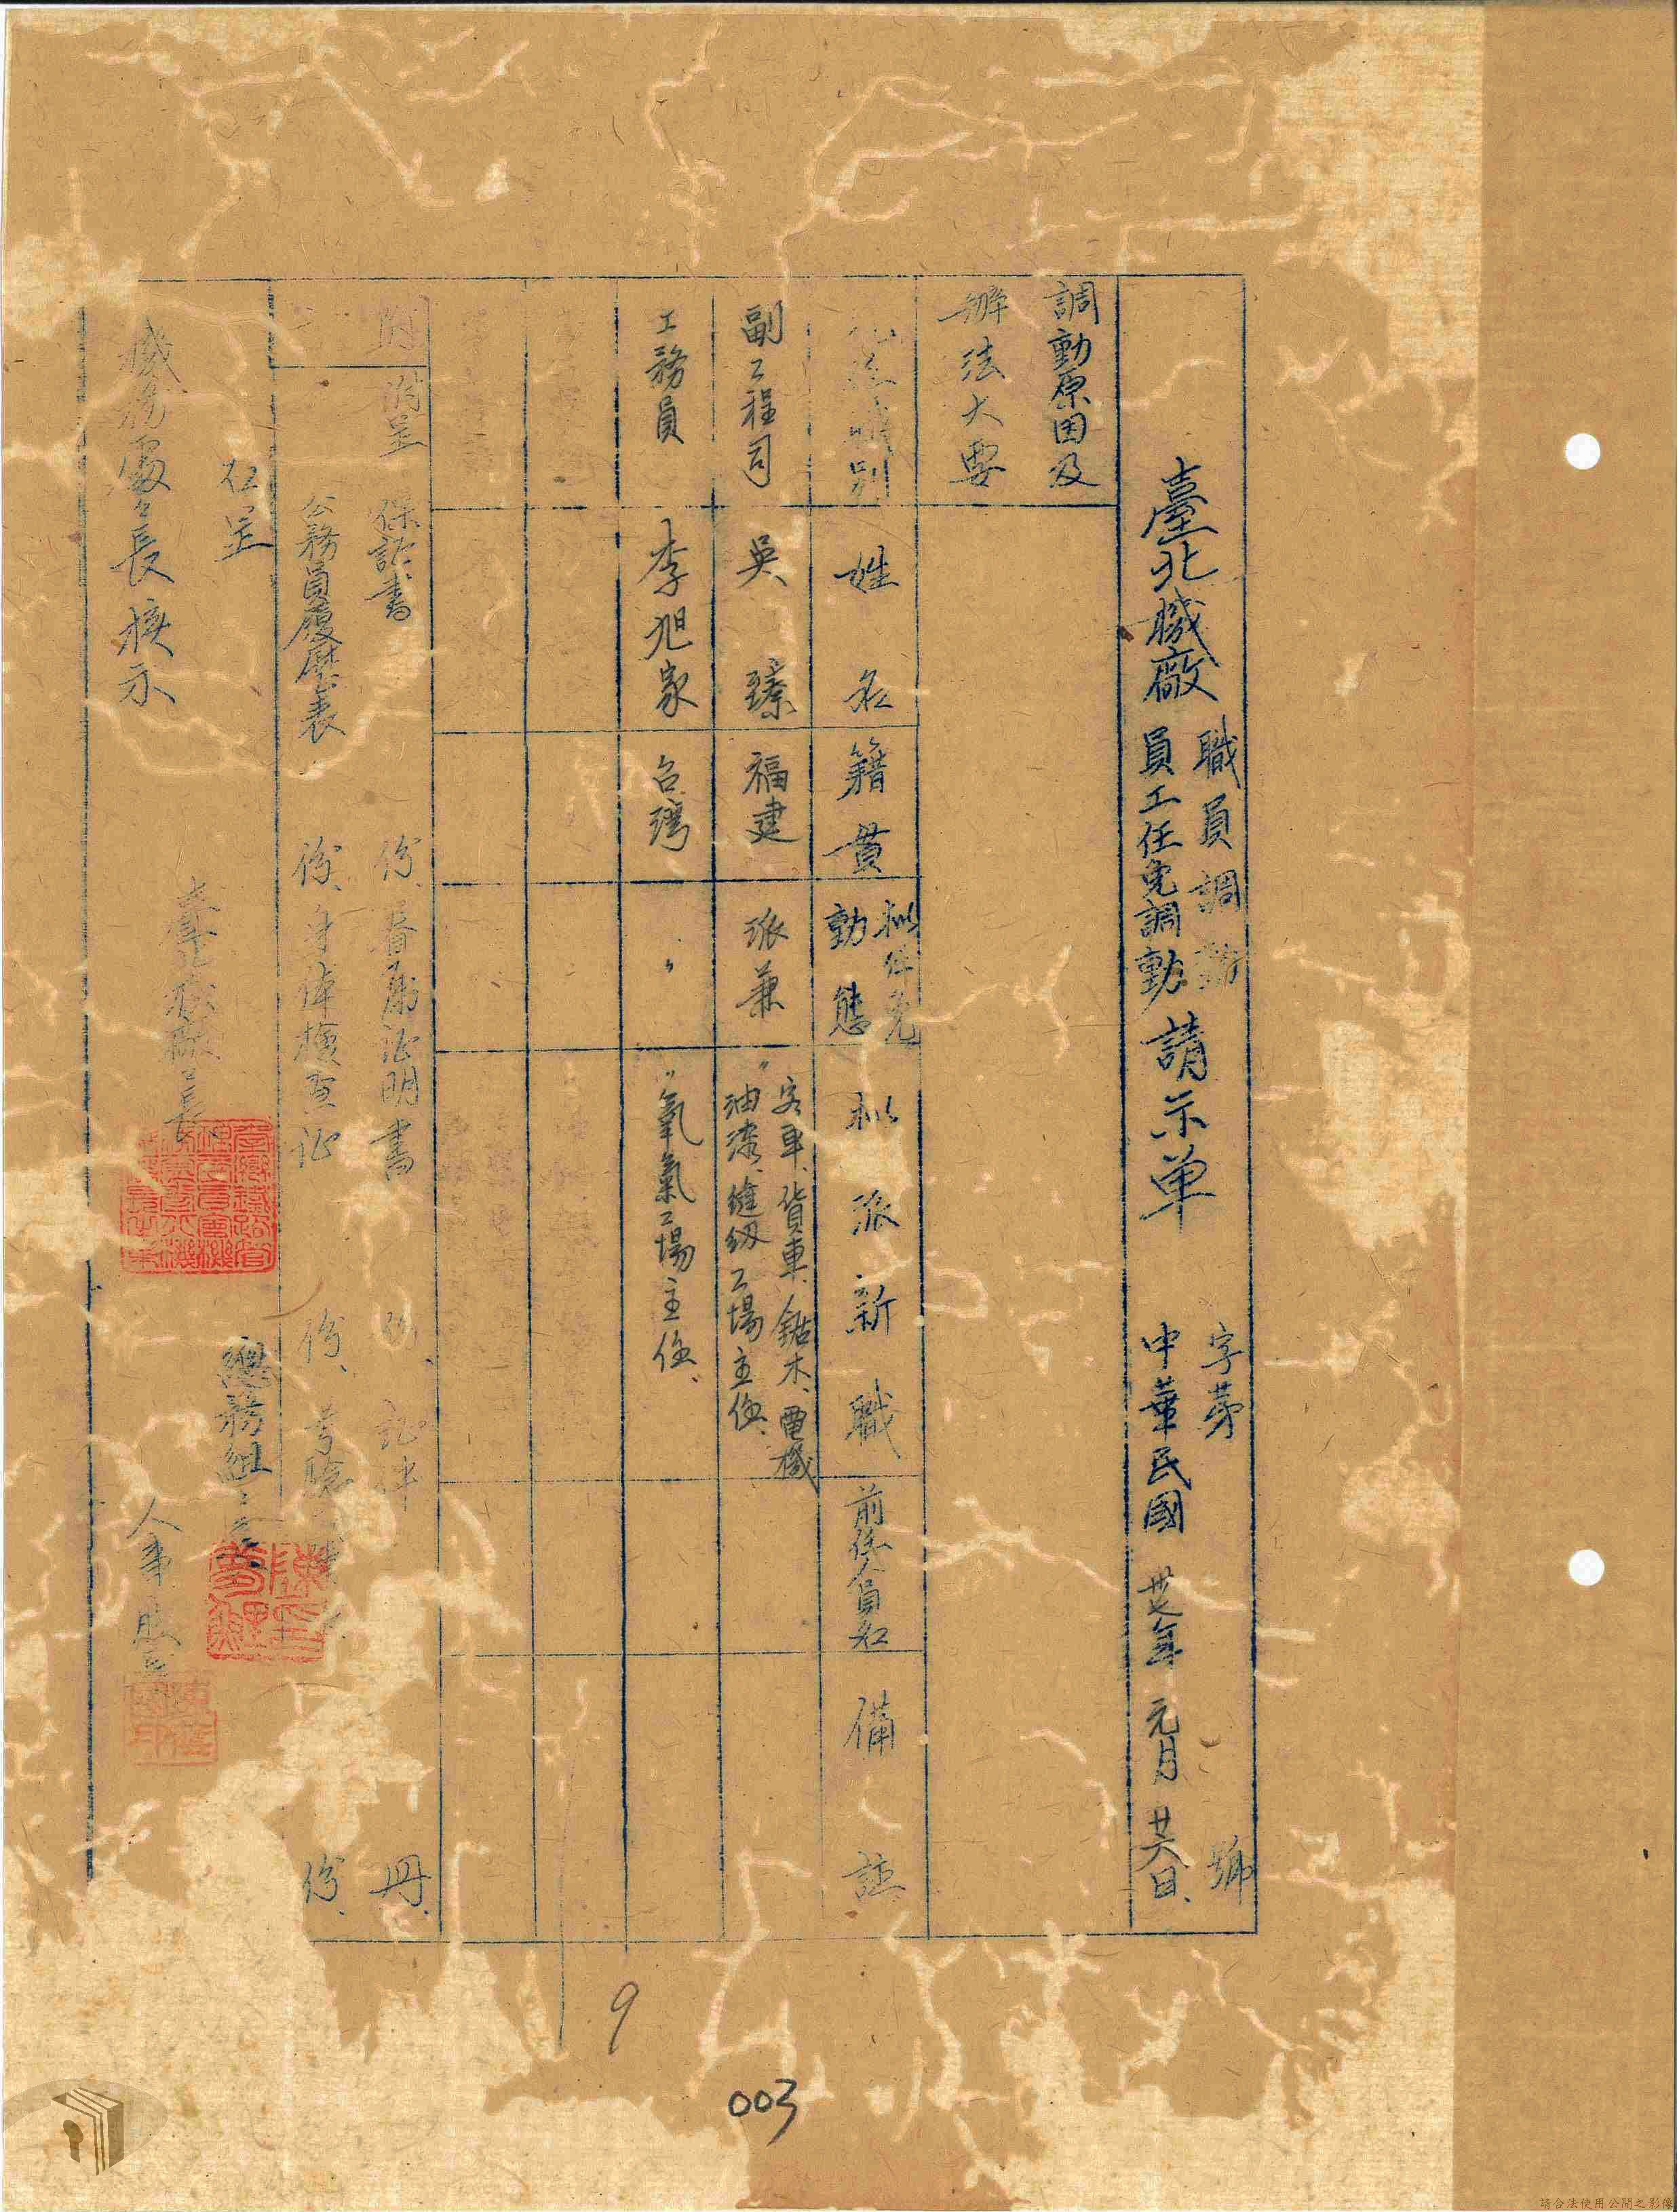 字第 號
職員調動
臺北機廠 員工任免調動 請示单 中華民國 卅七年 元月 廿六日
調動原因及
辦法大要
職別 姓名 籍貫 拟任免動態 拟派新職 前任人員名 備註
副工程司 吳臻 福建 派兼 〃客車、貨車、鋸木、電機
油漆、縫紉工場主任、
工務員 李旭家 台灣 〃 〃氧氣工場主任、
附 附呈 保証書 份、資歷証明書 份、証件 冊、
公務員履歷表 份、身体檢查証 份、考驗 份、
右呈
機務處處長核示
臺北機廠廠長
總務組主
人事股
9
003
請合法使用公開之影像